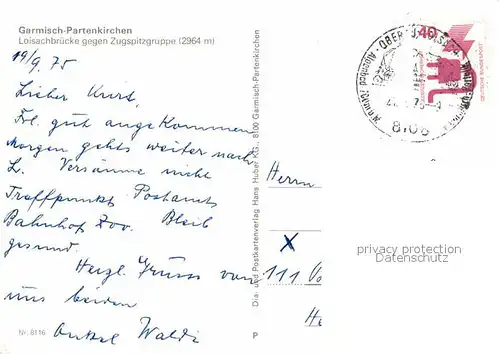 Garmisch-Partenkirchen
Loisachbrücke gegen Zugspitzgruppe (2964 m)
19/9. 75
Lieber Kurd,
Fl. gut angekommen
Morgen gehts weiter nach
L. Versäume nicht
Treffpunkt Postamt
Bahnhof Zoo. Bleib
gesund.
Herzl. Gruss von
uns beiden
Onkel Waldi
Nr. 8116
P
Dia- und Postkartenverlag Hans Huber KG., 8100 Garmisch-Partenkirchen
Herrn
X
111
privacy protection
Datenschutz
40
DEUTSCHE BUNDESPOST
8106